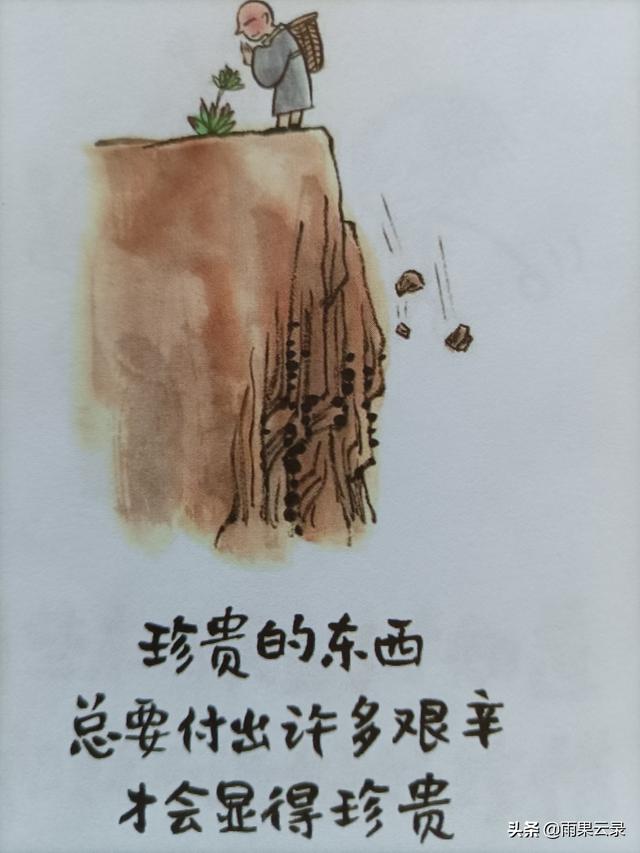 珍贵的东西
总要付出许多艰辛
才会显得珍贵
头条 @雨果云录